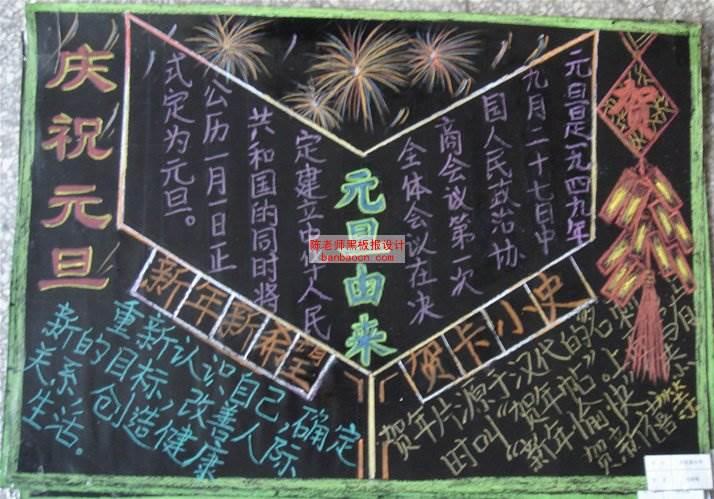 庆祝元旦
元旦由来
元旦是一九四九年
九月二十七日中
国人民政治协
商会议第一次
全体会议在决
定建立中华人民
共和国的同时将
公历一月一日正
式定为元旦。
新年新希望
重新认识自己,确定
新的目标,改善人际
关系,创造健康
生活。
贺卡小史
贺年片源于汉代的名刺
时叫“贺年帖”。上
“新年愉快”
贺新禧
贺
陈老师黑板报设计
banbaocn.com